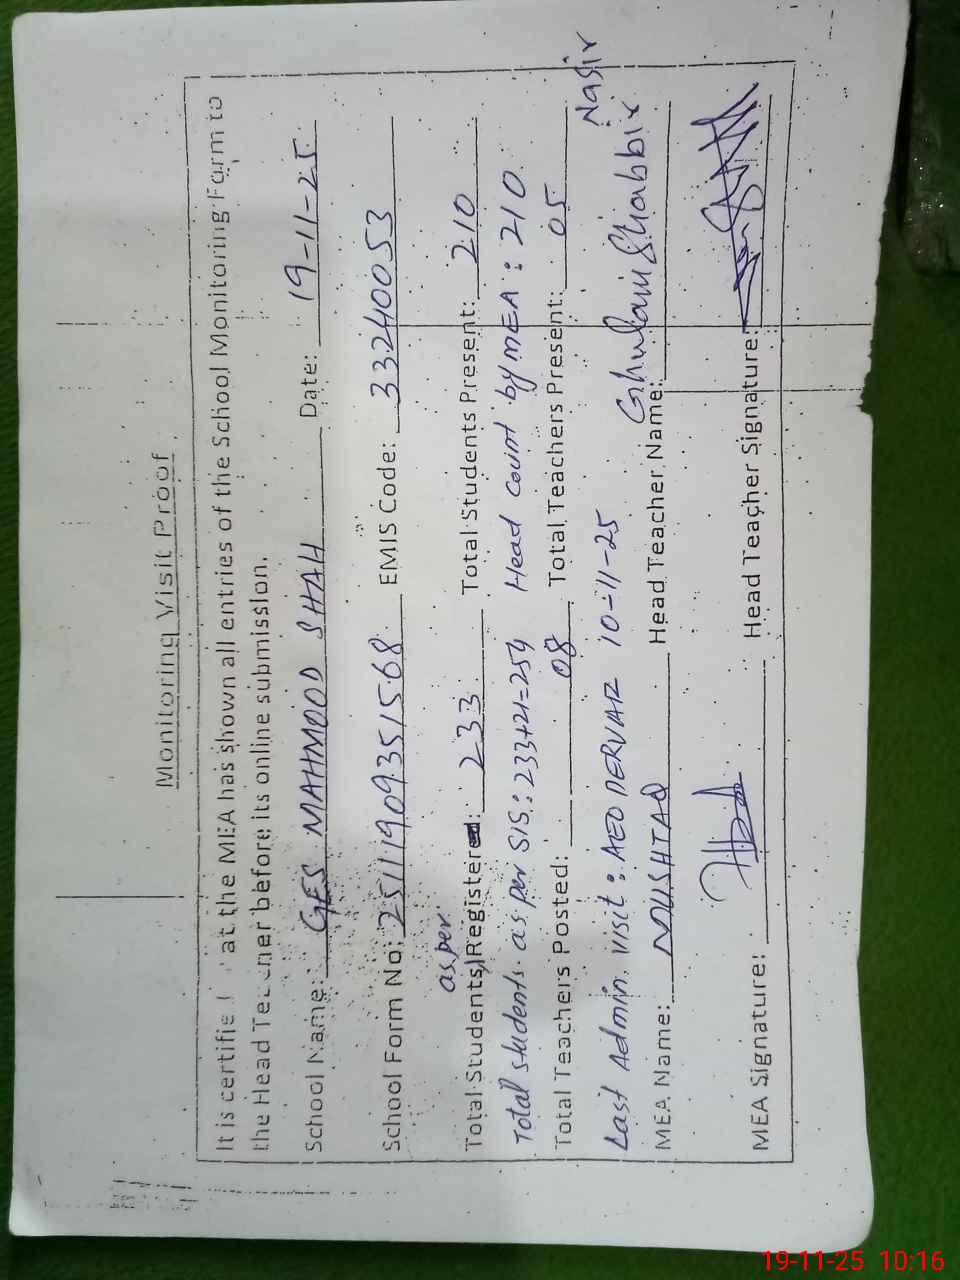 Monitoring Visit Proof
It is certifie at the MEA has shown all entries of the School Monitoring Form to
the Head Teacher before its online submission.
School Name: GES MAHMOOD SHAH Date: 19-11-25
School Form No: 25111909351568 EMIS Code: 33240053
as per
Total Students Registered: 233 Total Students Present: 210
Total students as per SIS: 233+21=254 Head Count by MEA: 210
Total Teachers Posted: 08 Total Teachers Present: 05
Last Admin. visit: AEO 10-11-25
Nasir
MEA Name: MUSHTAQ Head Teacher Name: Ghulam Shabbir
MEA Signature: Head Teacher Signature:
19-11-25 10:16